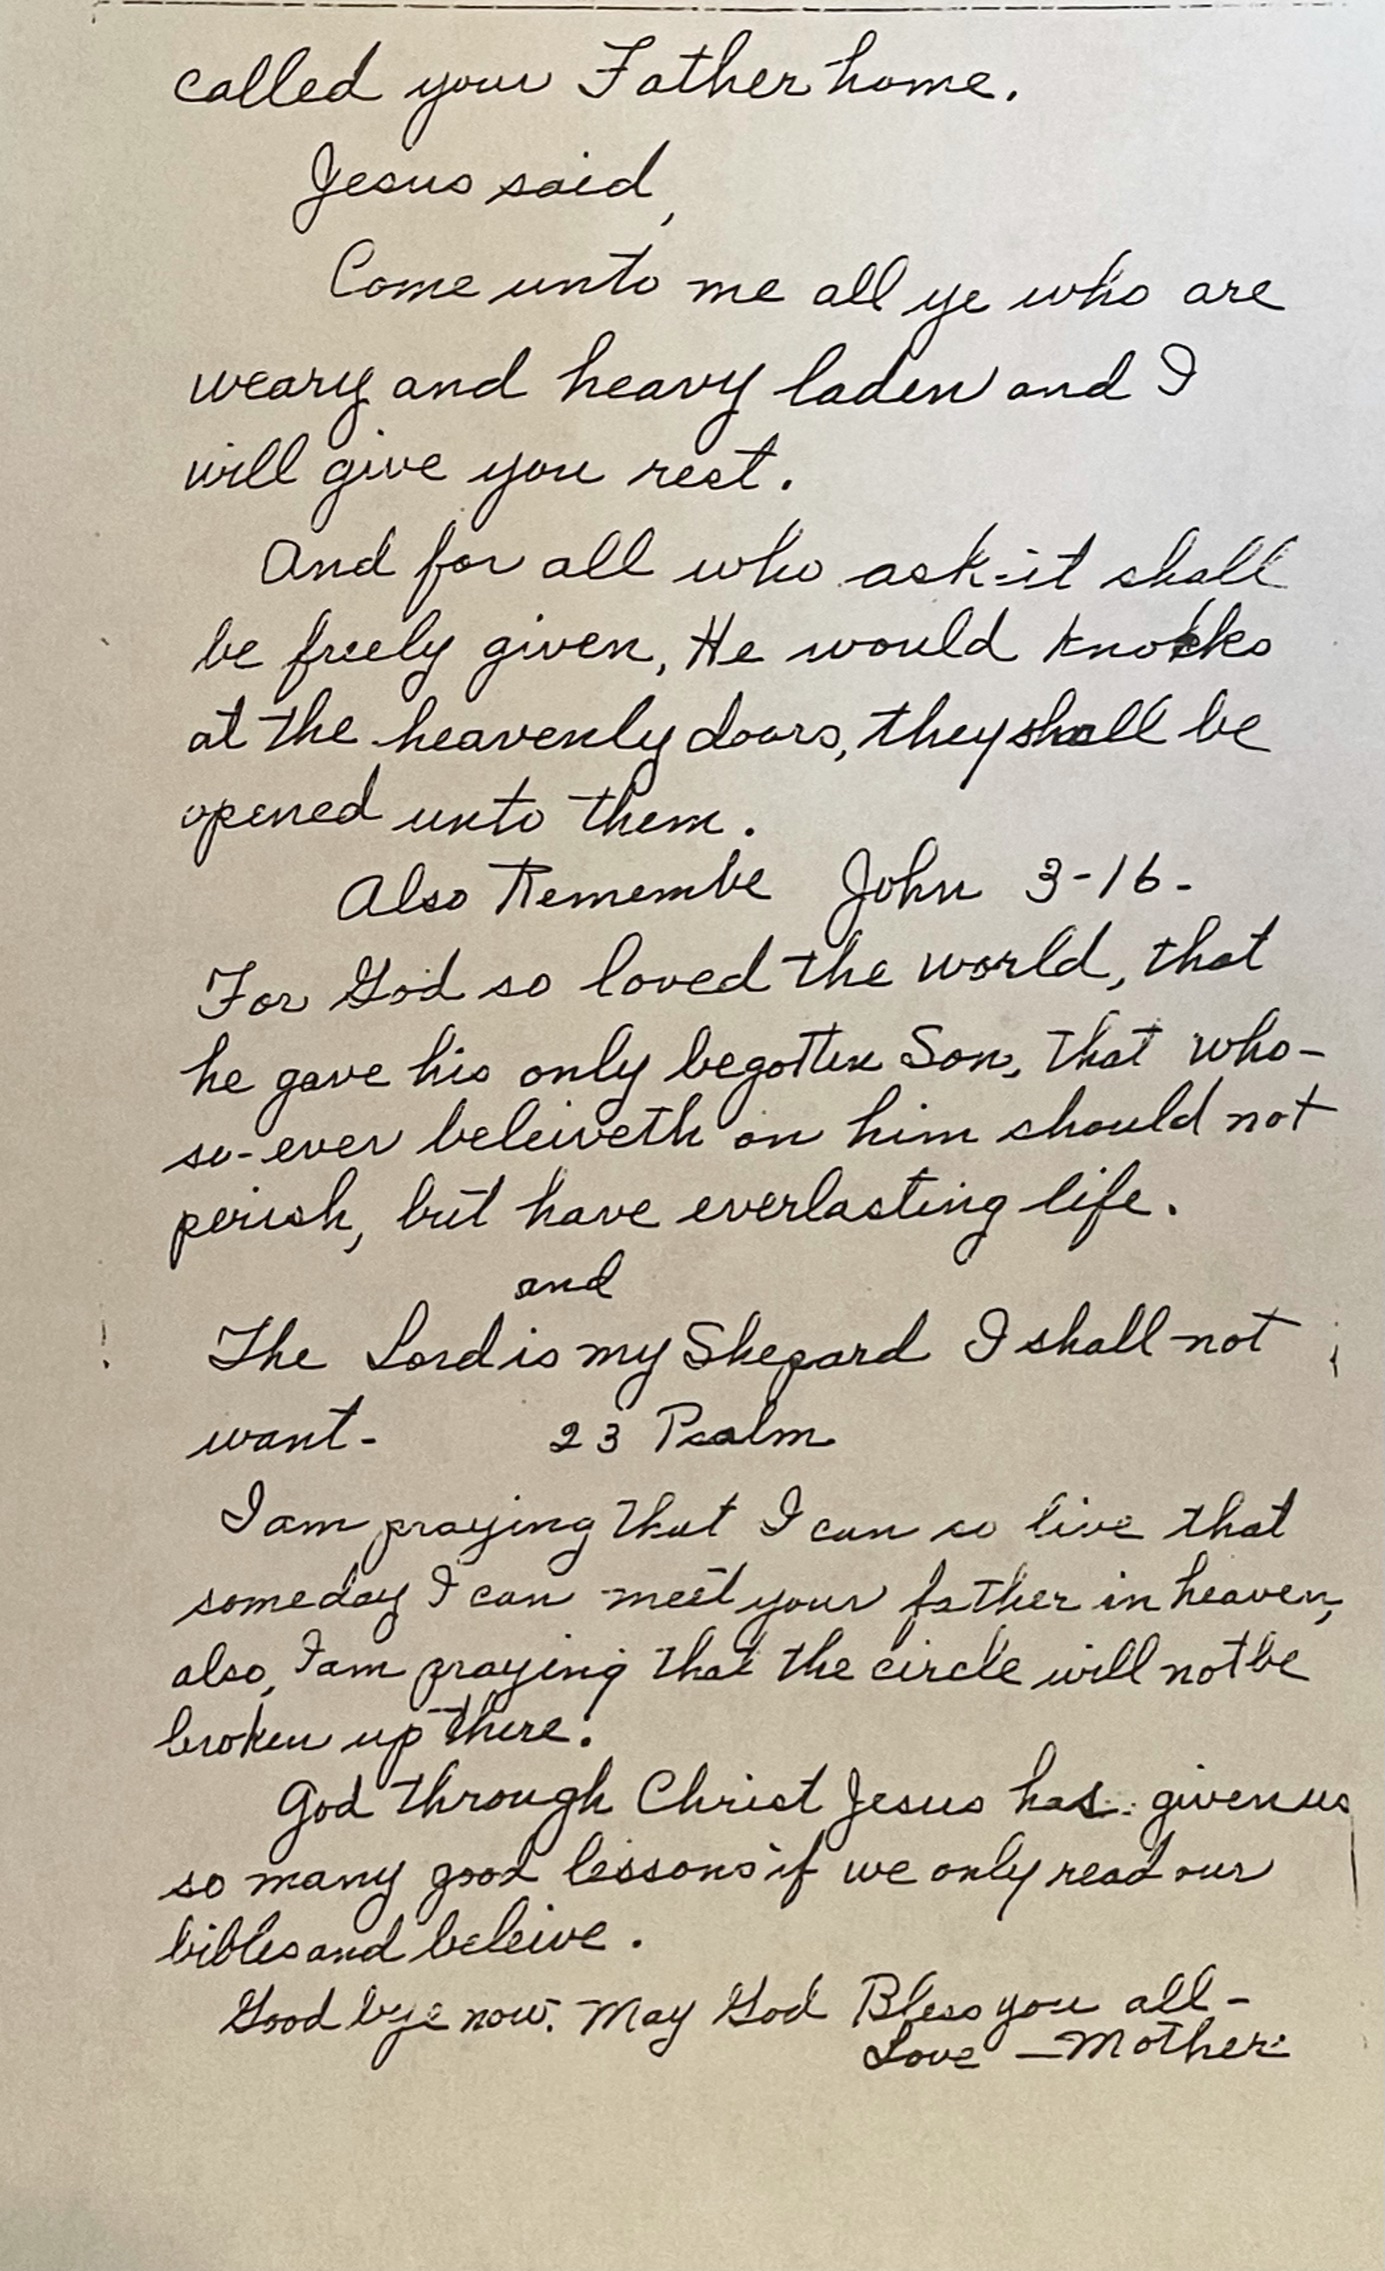 called your Father home.
Jesus said,
Come unto me all ye who are
weary and heavy laden and I
will give you rest.
And for all who ask-it shall
be freely given, He would knocks
at the heavenly doors, they shall be
opened unto them.
Also Remembe John 3-16-
For God so loved the world, that
he gave his only begotten Son, that who-
so-ever beleiveth on him should not
perish, but have everlasting life.
and
The Lord is my Shepard I shall not
want- 23 Psalm
I am praying that I can so live that
someday I can meet your father in heaven,
also, I am praying that the circle will not be
broken up there.
God through Christ Jesus has given us
so many good lessons if we only read our
bibles and beleive.
Good bye now. May God Bless you all-
Love - Mother